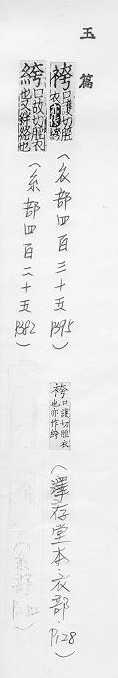 玉篇
袴口護切脛衣也亦作絝（衣部四百三十五P395）
絝口故切脛衣也又絆絡也（糸部四百二十五P382）
袴口護切脛衣也亦作絝（澤存堂本·衣部·P128）